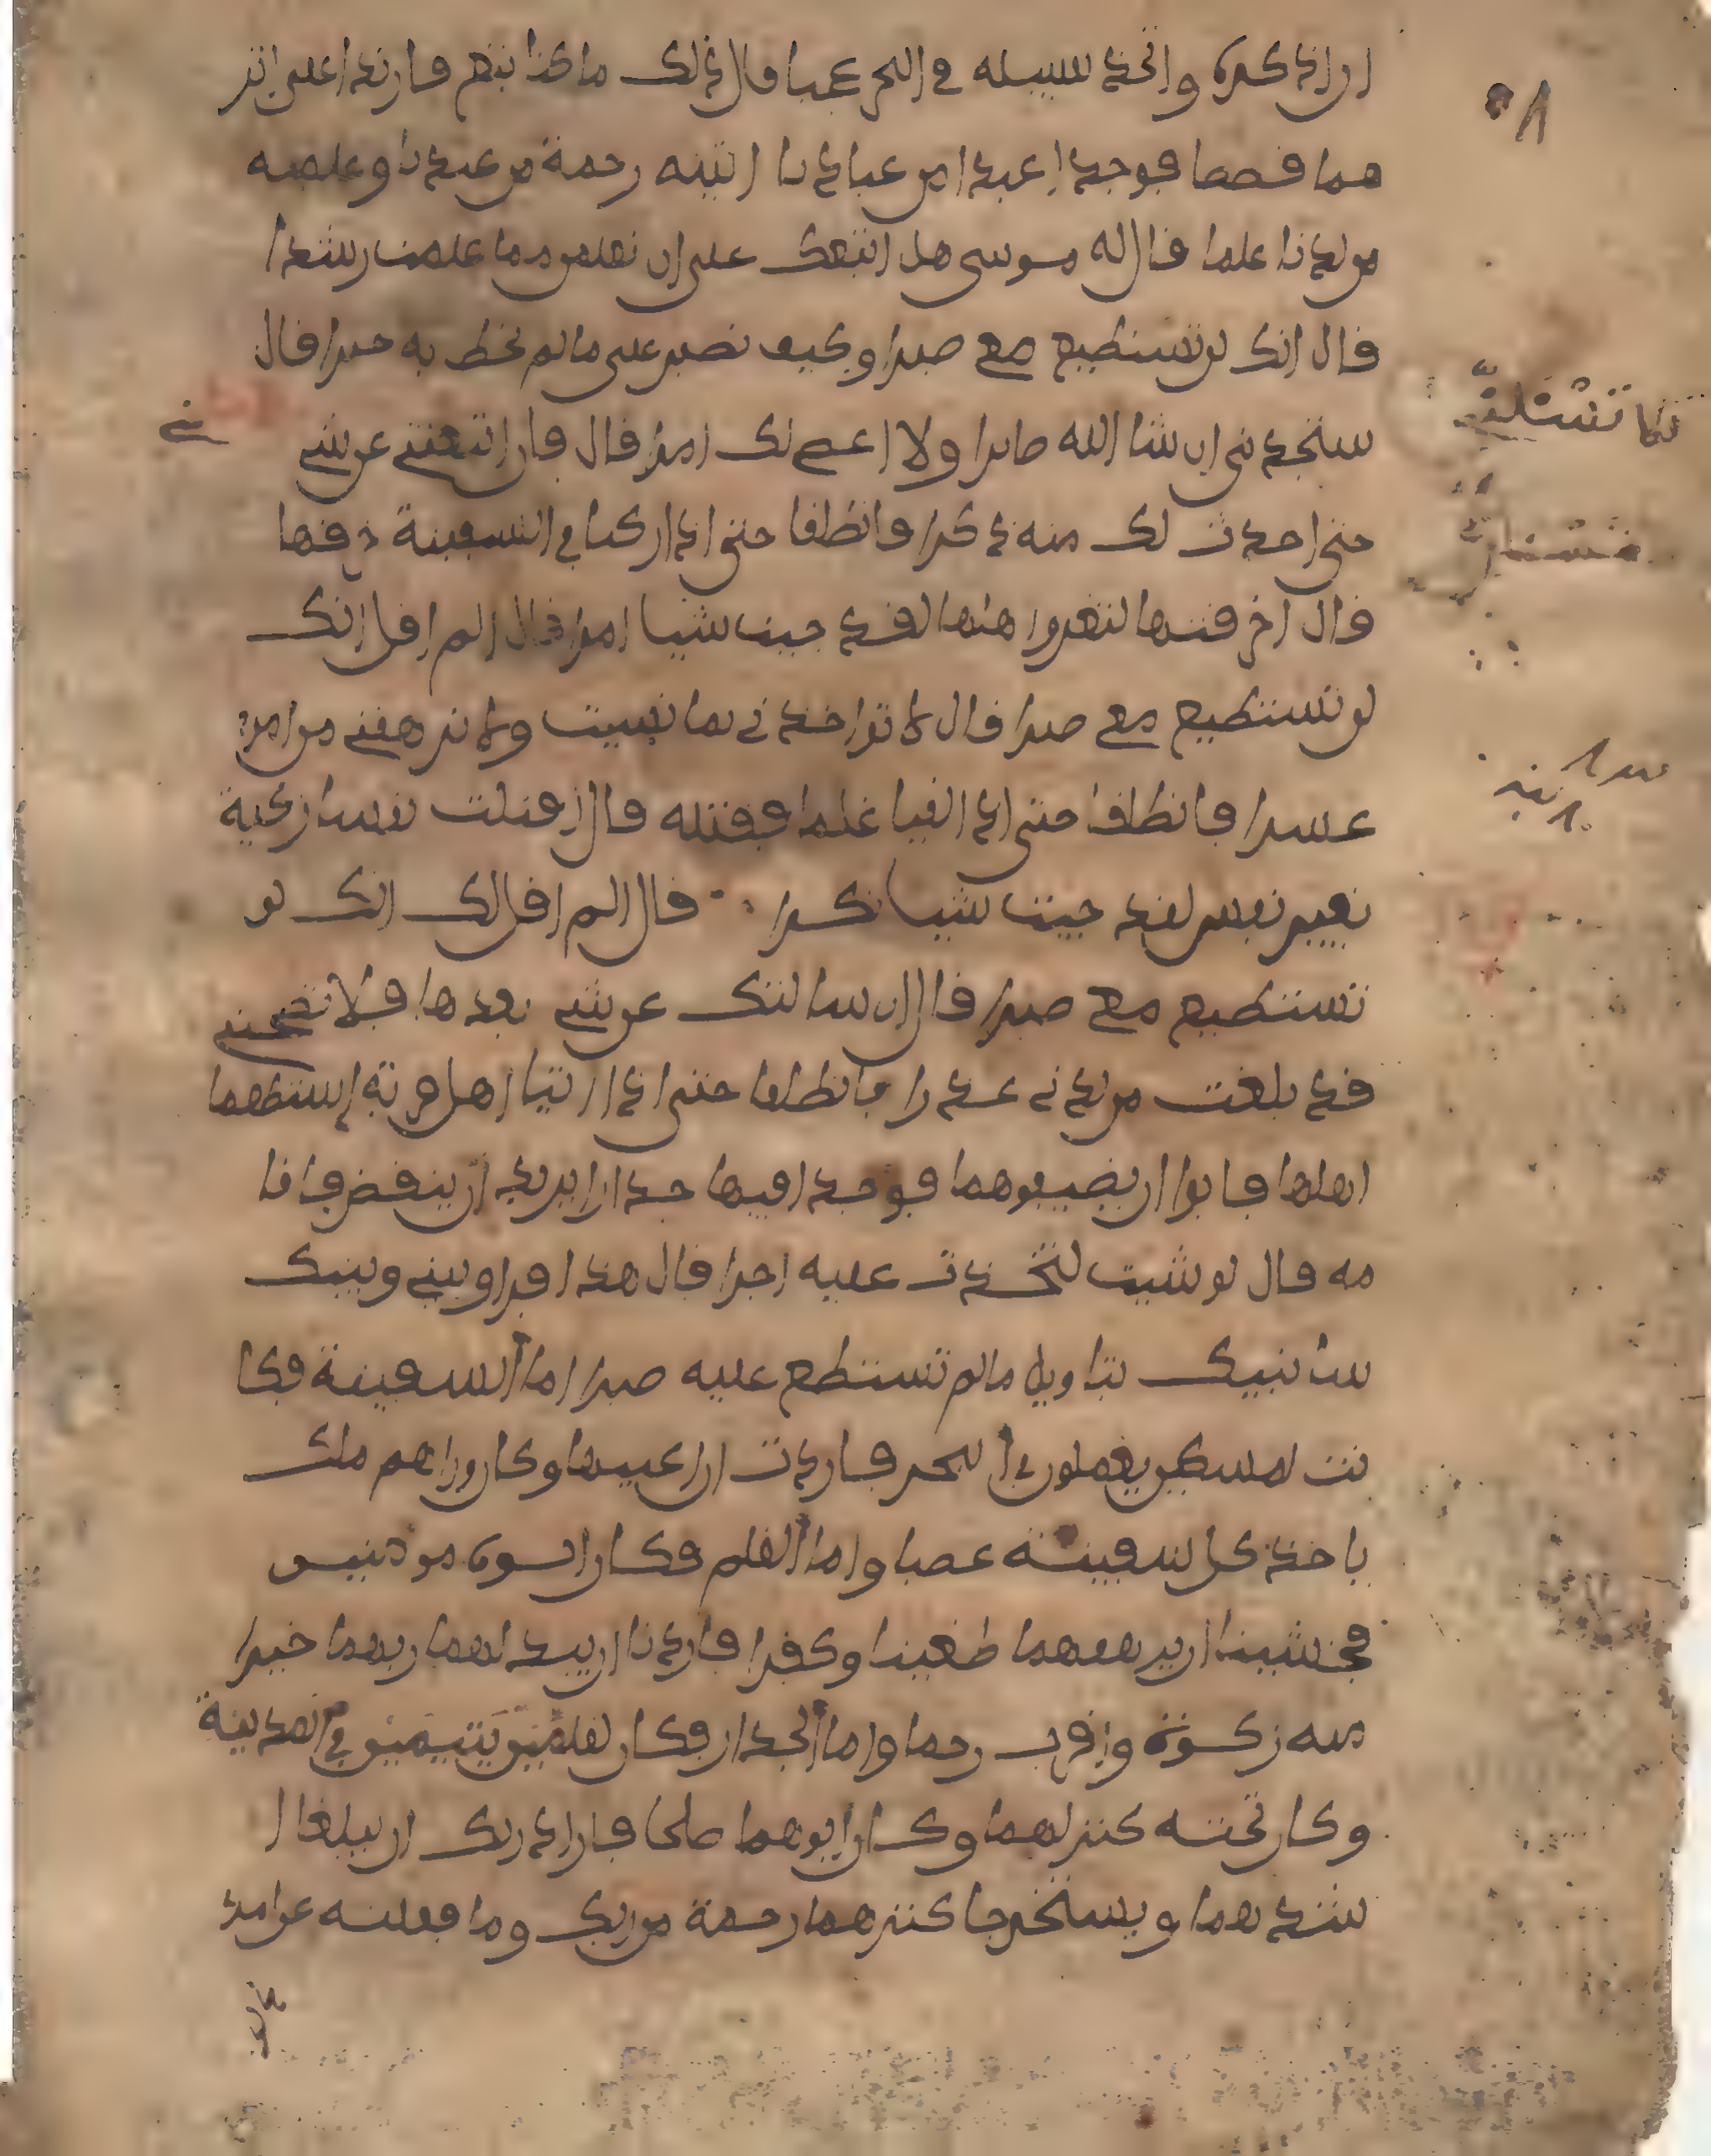 ان اذكره واتخذ سبيله في البحر عجبا قال ذلك ما كنا نبغ فارتدا على اثر
هما قصصا فوجدا عبدا من عبادنا اتينه رحمة من عندنا وعلمنه
من لدنا علما قال له موسى هل اتبعك على ان تعلمن مما علمت رشدا
قال انك لن تستطيع معي صبرا وكيف تصبر على ما لم تحط به خبرا قال
ستجدني ان شا الله صابرا ولا اعصي لك امرا قال فان اتبعتني عن شي
حتى احدث لك منه ذكرا فانطلقا حتى اذا ركبا في السفينة خرقها
قال اخرقتها لتغرق اهلها لقد جيت شيا امرا قال الم اقل انك
لن تستطيع معي صبرا قال لا تواخذني بما نسيت ولا ترهقني من امري
عسرا فانطلقا حتى اذا لقيا غلما فقتله قال اقتلت نفسا زكية
بغير نفس لقد جيت شيا نكرا قال الم اقل لك انك لن
تستطيع معي صبرا قال ان سالتك عن شي بعدها فلا تصحبني
قد بلغت من لدني عذرا فانطلقا حتى اذا اتيا اهل قرية استطعما
اهلها فابوا ان يضيفوهما فوجدا فيها جدارا يريد ان ينقض فاقا
مه قال لو شيت لتخذت عليه اجرا قال هذا فراق بيني وبينك
سانبيك بتاويل ما لم تستطع عليه صبرا اما السفينة فكا
نت لمسكين يعملون في البحر فاردت ان اعيبها وكان وراهم ملك
ياخذ كل سفينة غصبا واما الغلم فكان ابوه مومنين
فخشينا ان يرهقهما طغينا وكفرا فاردنا ان يبدلهما ربهما خيرا
منه زكوة واقرب رحما واما الجدار فكان لغلمين يتيمين في المدينة
وكان تحته كنز لهما وكان ابوهما صلحا فاراد ربك ان يبلغا ا
شدهما ويستخرجا كنزهما رحمة من ربك وما فعلته عن امري